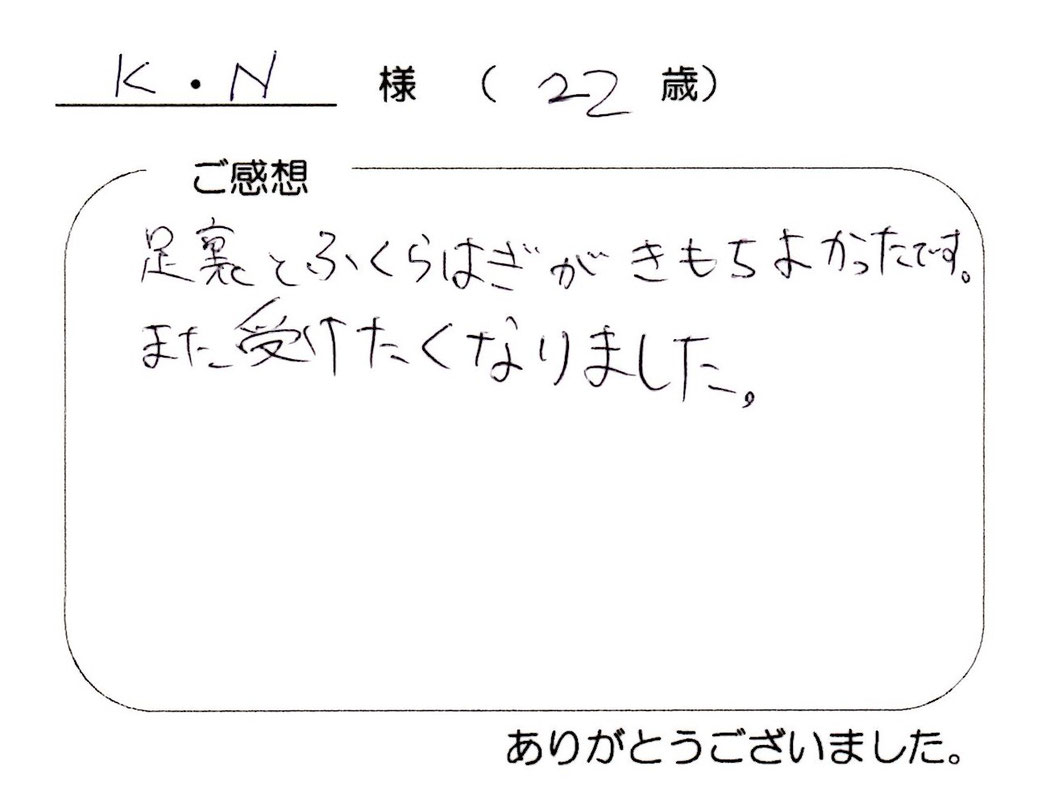 K・N 様 （ 22 歳）
ご感想
足裏とふくらはぎがきもちよかったです。
また受けたくなりました。
ありがとうございました。